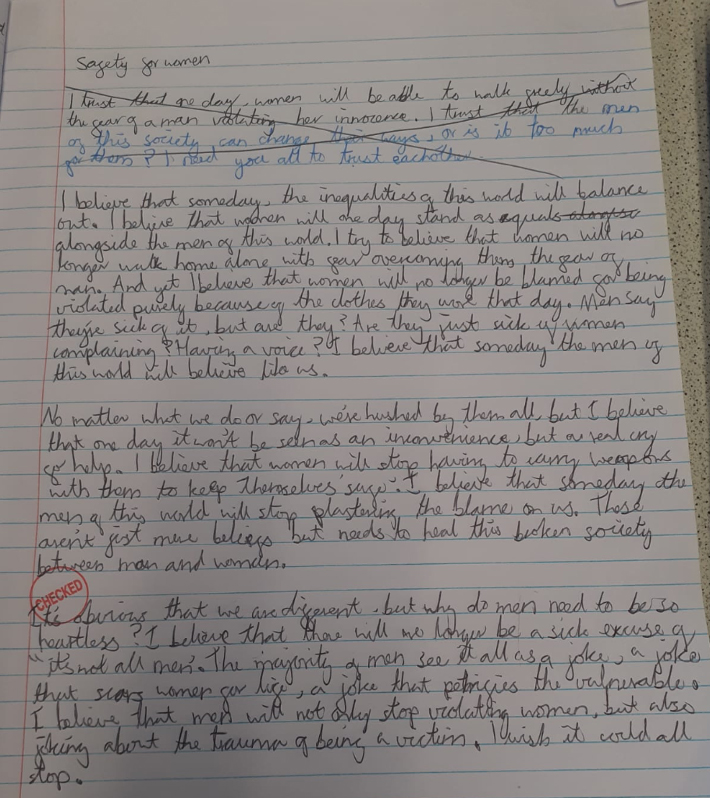 Safety for women
I trust that one day, women will be able to walk freely without
the fear of a man violating her innocence. I trust that the men
of this society can change their ways, or is it too much
for them? I need you all to trust eachother.
I believe that someday, the inequalities of this world will balance
out. I believe that women will one day stand as equals alongse
alongside the men of this world. I try to believe that women will no
longer walk home alone with fear overcoming them, the fear of
man. And yet I believe that women will no longer be blamed for being
violated purely because of the clothes they wore that day. Men say
they're sick of it, but are they? Are they just sick of women
complaining? Having a voice? I believe that someday the men of
this world will believe like us.
No matter what we do or say, we're hushed by them all, but I believe
that one day it won't be seen as an inconvenience, but a real cry
for help. I believe that women will stop having to carry weapons
with them to keep themselves 'safe'. I believe that someday the
men of this world will stop plastering the blame on us. These
aren't just mere beliefs but needs to heal this broken society
between man and women.
CHECKED
It's obvious that we are different, but why do men need to be so
heartless? I believe that there will no longer be a sick excuse of
"it's not all men". The majority of men see it all as a joke, a joke
that scars women for life, a joke that petrifies the vulnerable.
I believe that men will not only stop violating women, but also
joking about the trauma of being a victim. I wish it could all
stop.